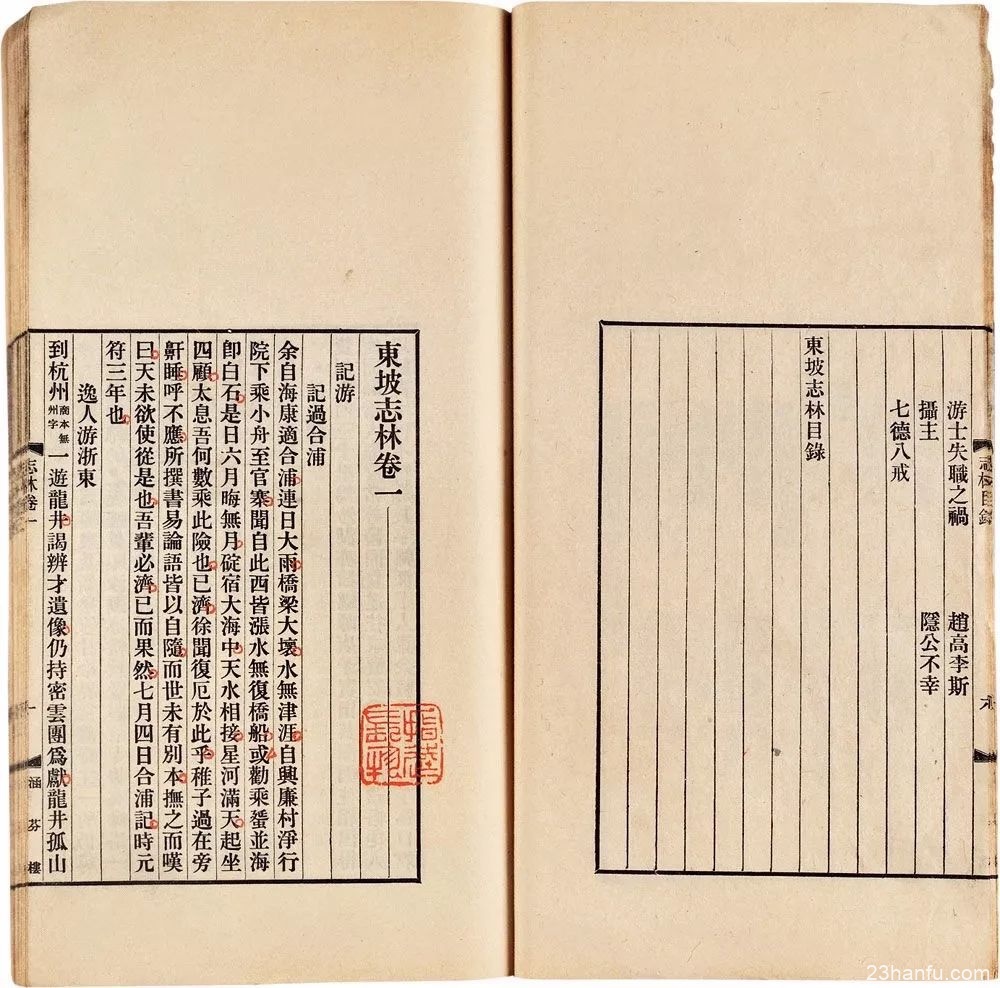 志林目錄
游士失職之禍 趙高李斯
攝主 隱公不幸
七德八戒
東坡志林目錄
東坡志林卷一
記游
記過合浦
余自海康適合浦連日大雨橋梁大壞水無津涯自興廉村淨行
院下乘小舟至官寨聞自此西皆漲水無復橋船或勸乘蜑並海
卽白石是日六月晦無月碇宿大海中天水相接星河滿天起坐
四顧太息吾何數乘此險也已濟徐聞復厄於此乎稚子過在旁
鼾睡呼不應所撰書易論語皆以自隨而世未有別本撫之而嘆
曰天未欲使從是也吾輩必濟已而果然七月四日合浦記時元
符三年也
逸人游浙東
到杭州商本無州字一遊龍井謁辨才遺像仍持密雲團爲獻龍井孤山
志林卷一 一 涵芬樓
23hanfu.com